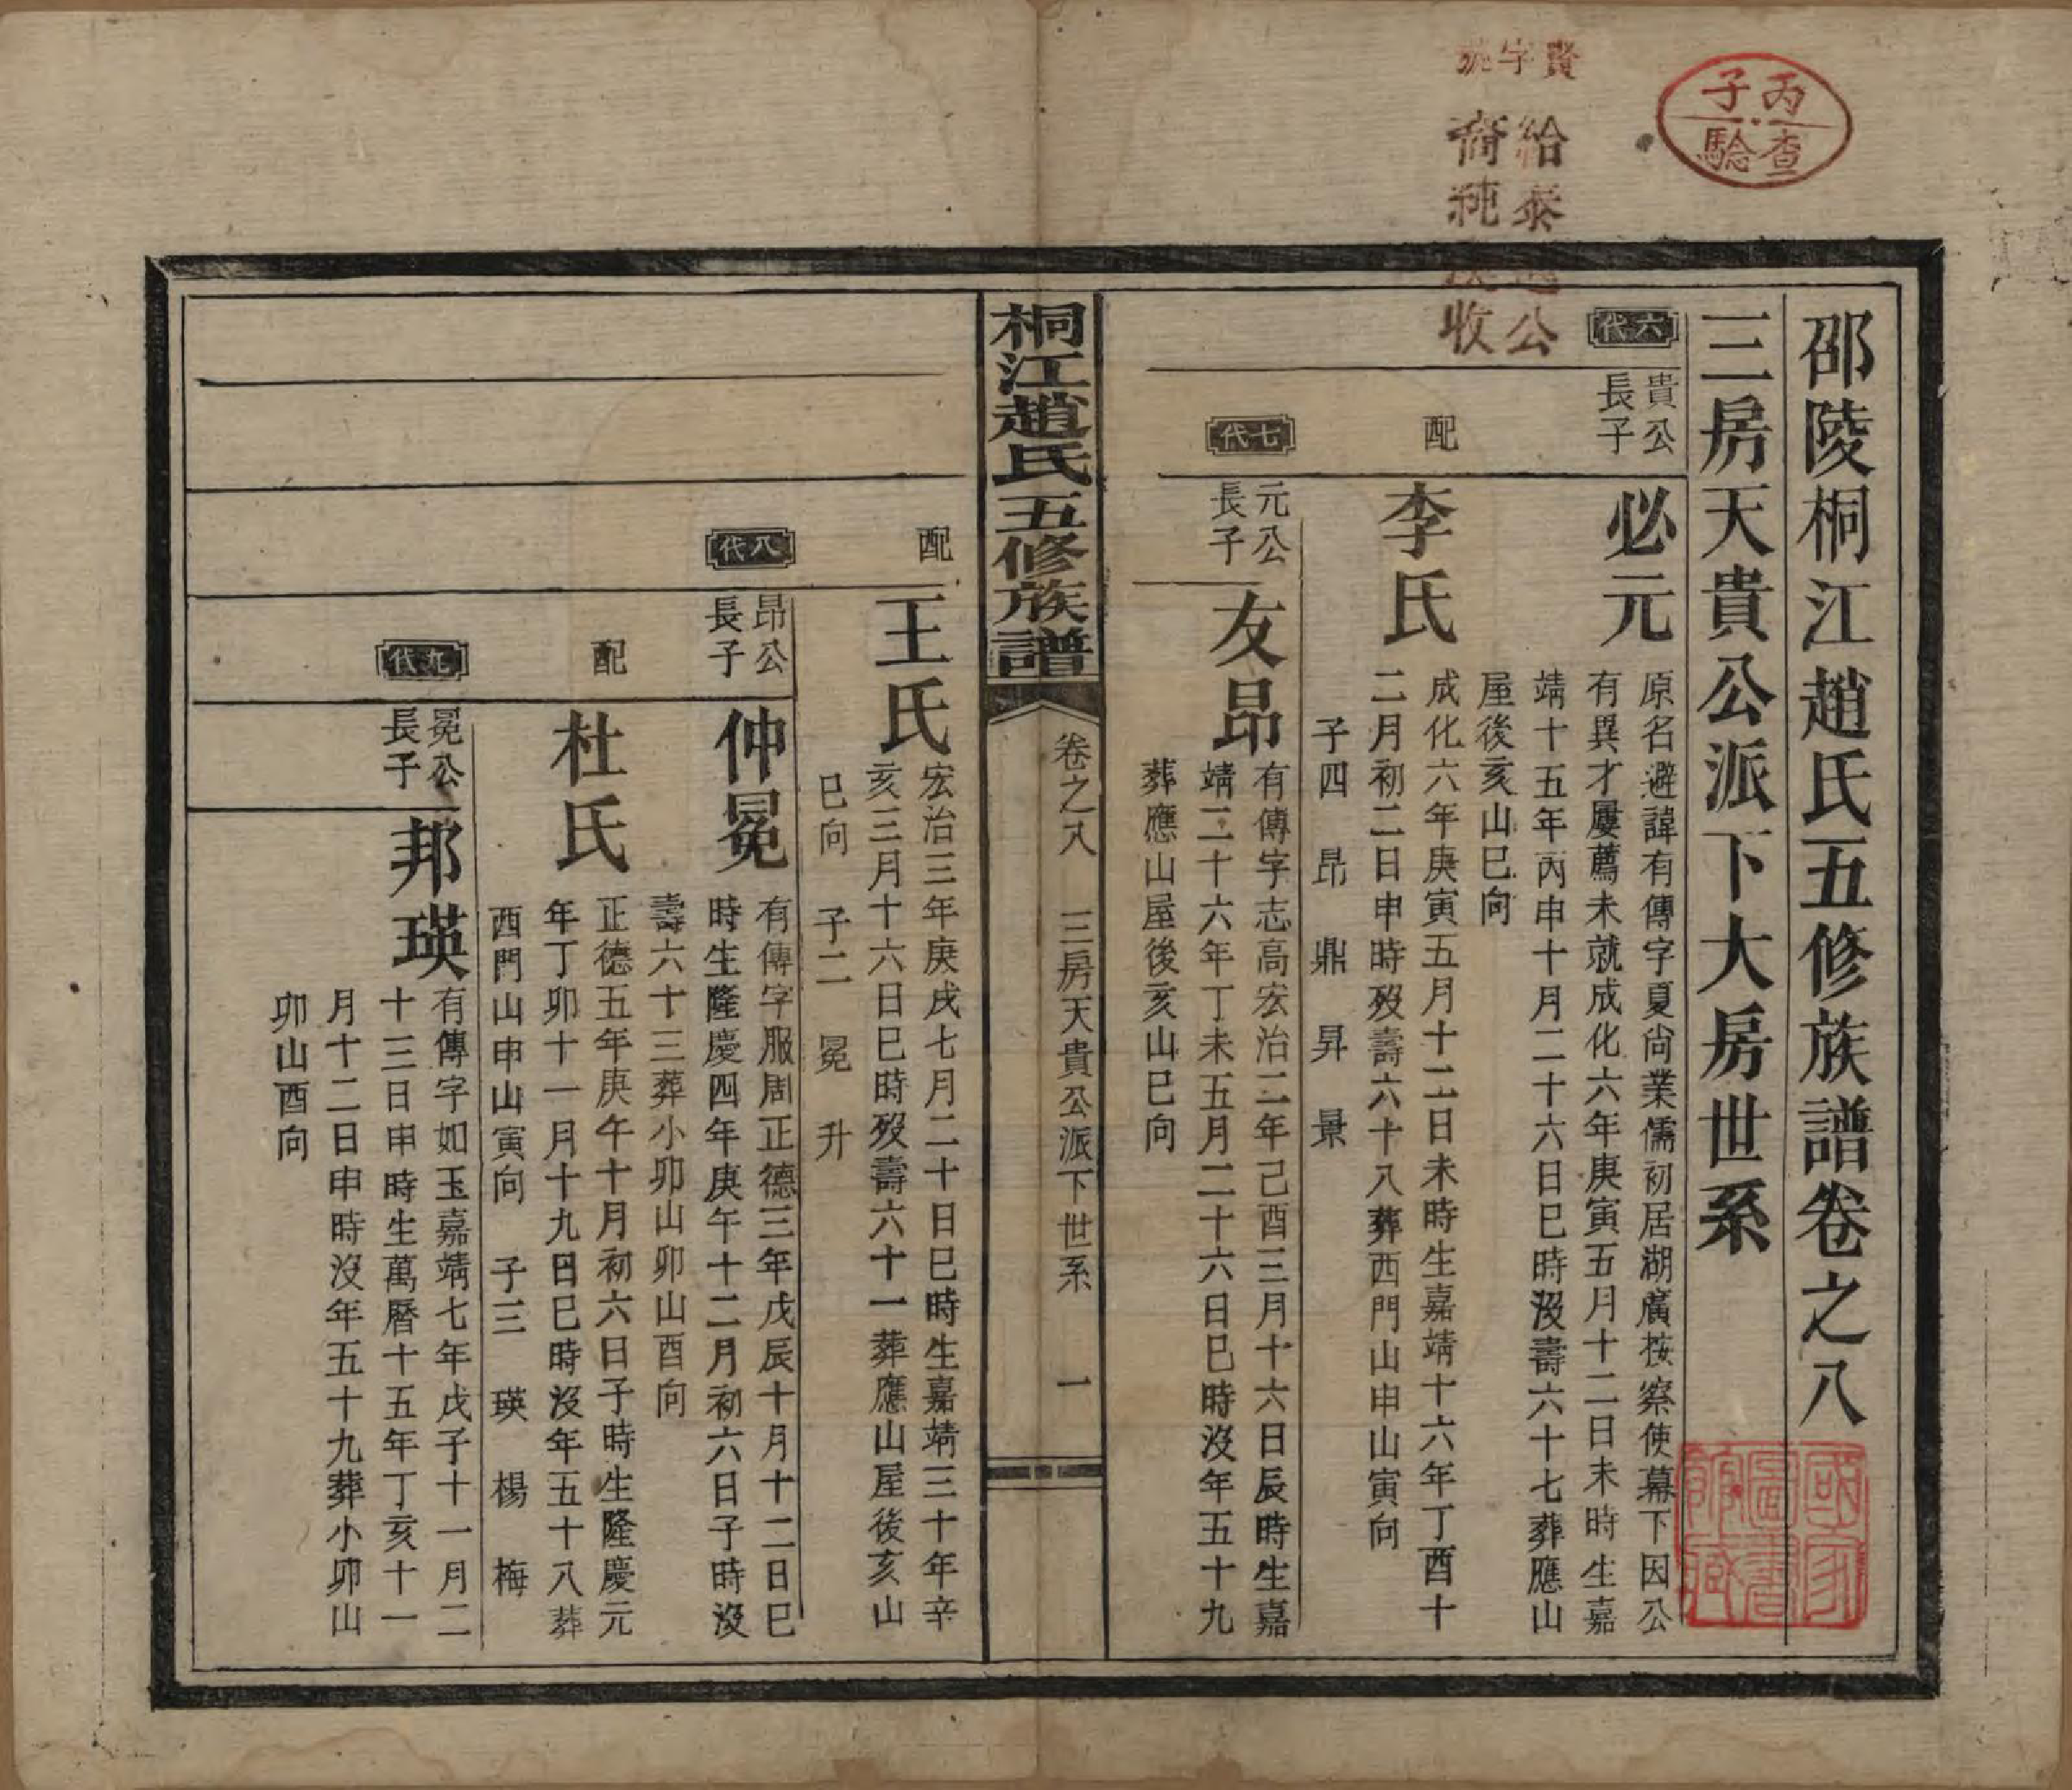 丙子
查驗
賢字號
給泰公
裔純收
邵陵桐江趙氏五修族譜卷之八
三房天貴公派下大房世系
六代
貴公
長子
必元
原名避諱有傳字夏尚業儒初居湖廣按察使幕下因公
有異才屢薦未就成化六年庚寅五月十二日未時生嘉
靖十五年丙申十月二十六日巳時沒壽六十七葬應山
屋後亥山巳向
配
李氏
成化六年庚寅五月十二日未時生嘉靖十六年丁酉十
二月初二日申時歿壽六十八葬西門山申山寅向
子四 昂 鼎 昇 景
七代
元公
長子
友昂
有傳字志高宏治二年己酉三月十六日辰時生嘉
靖二十六年丁未五月二十六日巳時沒年五十九
葬應山屋後亥山巳向
桐江趙氏五修族譜
卷之八 三房天貴公派下世系 一
配
王氏
宏治三年庚戌七月二十日巳時生嘉靖三十年辛
亥三月十六日巳時歿壽六十一葬應山屋後亥山
巳向 子二 冕 升
八代
昂公
長子
仲冕
有傳字服周正德三年戊辰十月十二日巳
時生隆慶四年庚午十二月初六日子時沒
壽六十三葬小卯山卯山酉向
配
杜氏
正德五年庚午十月初六日子時生隆慶元
年丁卯十一月十九日巳時沒年五十八葬
西門山申山寅向 子三 瑛 楊 梅
九代
冕公
長子
邦瑛
有傳字如玉嘉靖七年戊子十一月二
十三日申時生萬曆十五年丁亥十一
月十二日申時沒年五十九葬小卯山
卯山酉向
國家
圖書
館藏